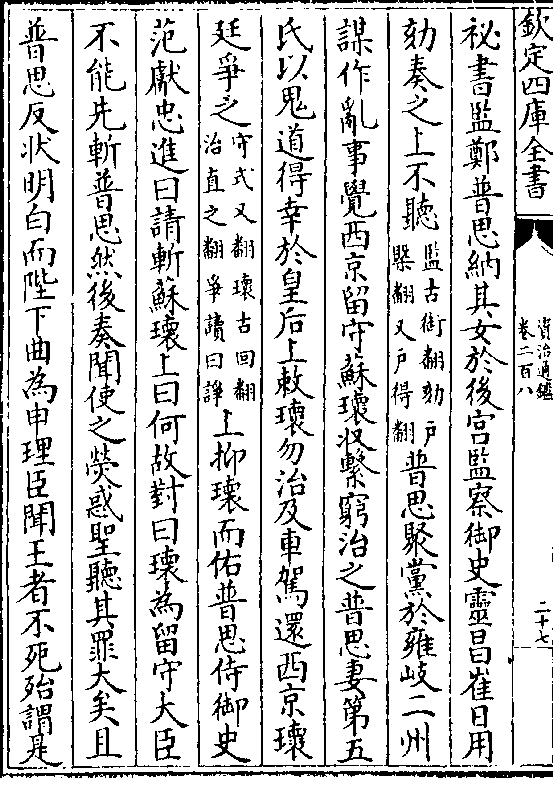 欽定四庫全書
資治通鑑
卷二百八
二十七
祕書監鄭普思納其女於後宫監察御史靈昌崔日用
劾奏之上不聽監古銜翻劾户槩翻又户得翻普思聚黨於雍岐二州
謀作亂事覺西京留守蘇瓌收繫窮治之普思妻第五
氏以鬼道得幸於皇后上敕瓌勿治及車駕還西京瓌
廷爭之守式又翻瓌古回翻治直之翻爭讀曰諍上抑瓌而佑普思侍御史
范獻忠進曰請斬蘇瓌上曰何故對曰瓌為留守大臣
不能先斬普思然後奏聞使之熒惑聖聽其罪大矣且
普思反狀明白而陛下曲為申理臣聞王者不死殆謂是